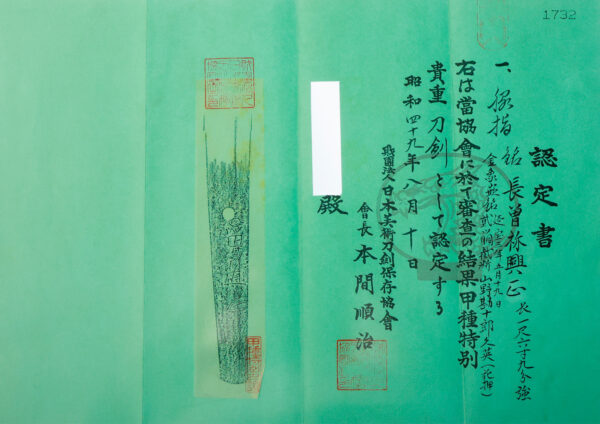 1732
認定書
一、脇指 銘 長曽祢興正 長一尺六寸九分強
金象嵌銘 年五月十九日
貮ッ胴截断 山野勘十郎久英(花押)
右は當協會に於て審査の結果甲種特別
貴重刀剣として認定する
昭和四十九年八月十日
財團法人日本美術刀剣保存協會
會長 本間順治
殿